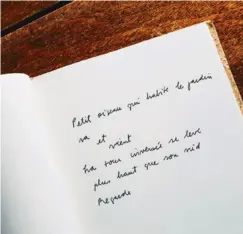 Petit oiseau qui habite le jardin
va et vient
sa tour inversée se lève
plus haut que son nid
Regarde